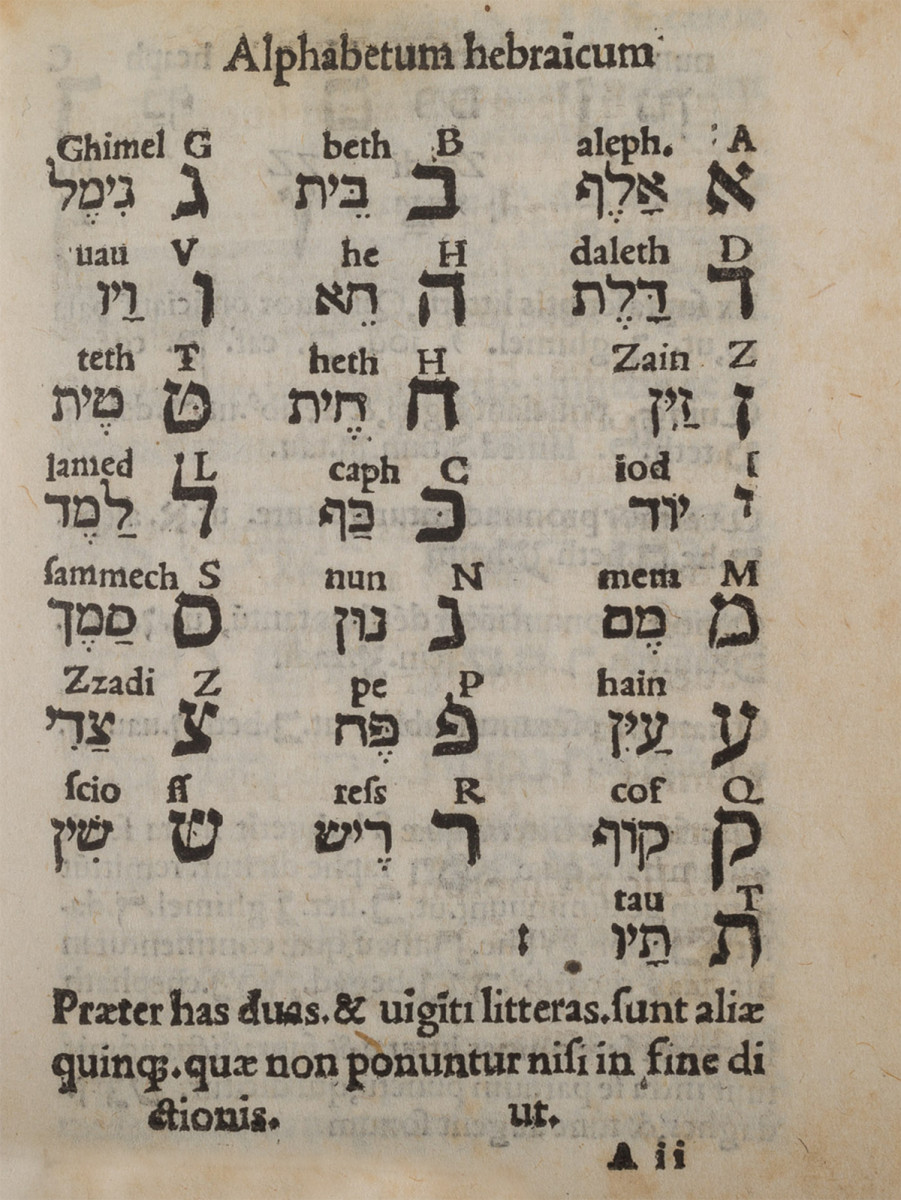 Alphabetum hebraīcum
Ghimel G beth B aleph. A
א אַלֶף ב בֵּית ג גִימֶל
uau V he H daleth D
ד דַּלֶת ה הֵא ו וַיו
teth T heth H Zain Z
ז זַיִן ח חֶית ט טֶית
lamed L caph C iod I
י יוֹד כ כַּף ל לַמֶד
ſammech S nun N mem M
מ מֶם נ נוּן ס סַמֶךְ
Zzadi Z pe P hain
ע עַיִן פּ פֶּה צ צַדִי
ſcio ſſ reſs R cof Q
ק קוֹף ר רֶיש ש שִׁין
tau T
ת תַּיו :
Præter has duas. & uigīti litteras. ſunt aliæ
quinqꝫ. quæ non ponuntur niſi in fine di
ctionis. ut.
A ii